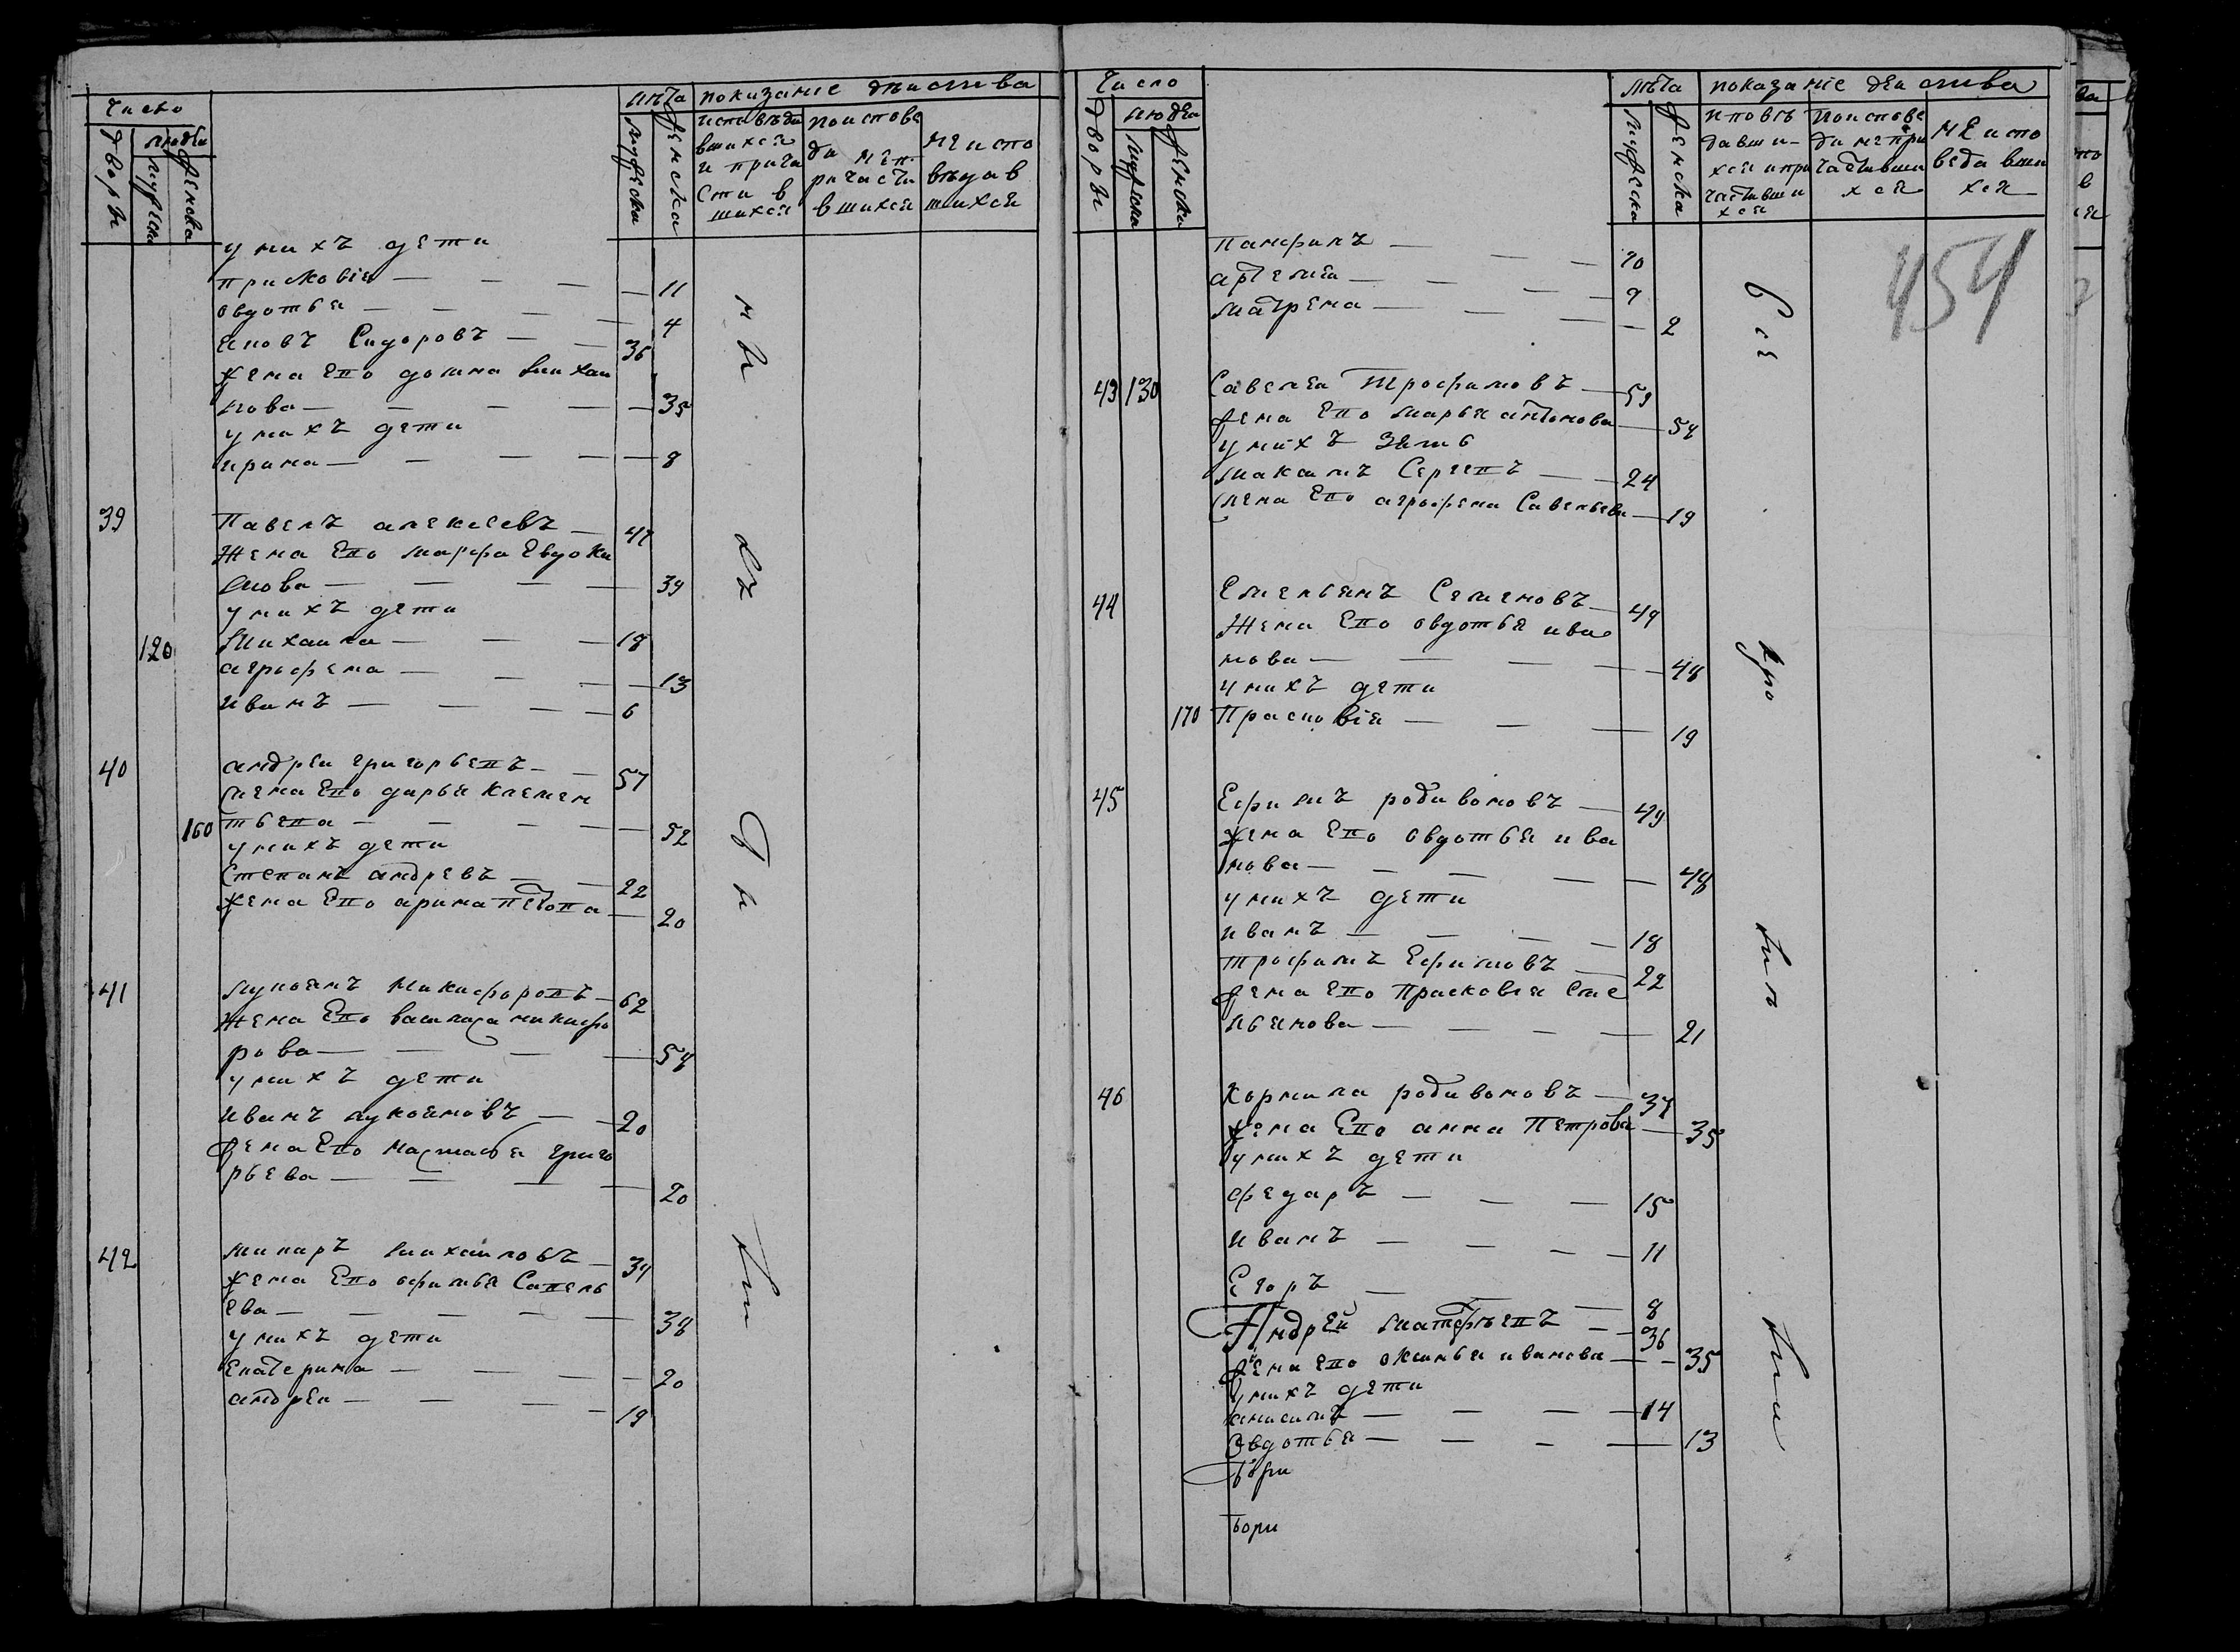 число
двори
людеи
мужеска
женска
лѣта
мужеска
женска
показание дѣиства
исповѣда
вшихся
и прича
сти в
шихся
поиспове
да неп
ричасти
вшихся
неиспо
вѣдав
шихся
у нихъ дети
прасковiя — 11
овдотья — 4
иновъ Сидоровъ — 36
жена Его домна михаи
лова — 35
у нихъ дети
ирина — 8
39 Павелъ алексеевъ — 47
Жена Его марфа Евдоки
мова — 39
у нихъ дети
120 Михаила — 18
агрофена — 13
иванъ — 6
40 андреи григорьевъ — 57
жена Его дарья клемен
160 тьева — 52
у нихъ дети
Степанъ андревъ — 22
жена Его арина петрова — 20
41 лукоянъ никифоровъ — 62
Жена Его василиса никифо
рова — 54
у нихъ дети
иванъ лукояновъ — 20
жена Его настасья григо
рьева — 20
42 макаръ михаиловъ — 37
жена Его офимья Савель
ева — 38
у нихъ дети
Екатерина — 20
андреи — 19
число
двори
людеи
мужеска
женска
лѣта
мужеска
женска
показание деиства
исповѣ
давши-
хся и при
частивши
хся
поиспове
да непри
частивши
хся
неиспо
ведавши
хся
454
Панфилъ — 10
артемеи — 9
матрена — 2
43 130 Савелеи Трофимовъ — 59
жена Его марья антонова — 54
у нихъ зять
максимъ Сергеевъ — 24
жена Его агрофена Савельева — 19
44 Емельянъ Семеновъ — 49
Жена Его овдотья ива
нова — 48
у нихъ дети
170 Прасковiя — 19
45 Ефимъ родивоновъ — 49
жена Его овдотья ива
нова — 48
у нихъ дети
иванъ — 18
трофимъ Ефимовъ — 22
жена Его Прасковья Еме
льянова — 21
46 Кормила родивоновъ — 37
жена Его анна Петрова — 35
у нихъ дети
федаръ — 15
иванъ — 11
Егоръ — 8
Андрей матфѣевъ — 36
жена его оксинья иванова — 35
у нихъ дети
анисимъ — 14
Овдотья — 13
бори